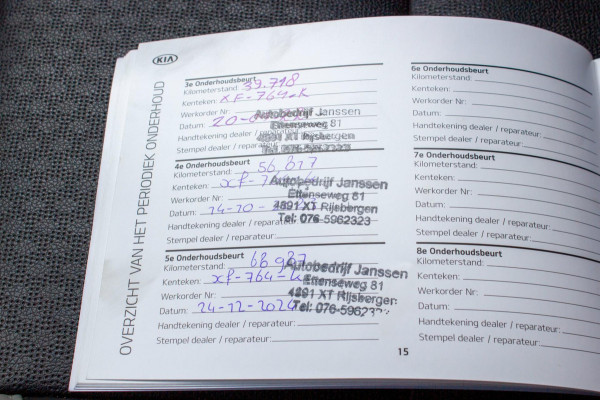 KIA
OVERZICHT VAN HET PERIODIEK ONDERHOUD
3e Onderhoudsbeurt
Kilometerstand: 39.718
Kenteken: XF-764-K
Werkorder Nr:
Datum: 20-
Handtekening dealer / reparateur:
Stempel dealer / reparateur:
Autobedrijf Janssen
Ettenseweg 81
4891 XT Rijsbergen
Tel: 076-5962323
4e Onderhoudsbeurt
Kilometerstand:
Kenteken: XF-764-K
Werkorder Nr:
Datum: 24-10-
Handtekening dealer / reparateur:
Stempel dealer / reparateur:
Autobedrijf Janssen
Ettenseweg 81
4891 XT Rijsbergen
Tel: 076-5962323
5e Onderhoudsbeurt
Kilometerstand: 68.987
Kenteken: XF-764-K
Werkorder Nr:
Datum: 24-12-2024
Handtekening dealer / reparateur:
Stempel dealer / reparateur:
Autobedrijf Janssen
Ettenseweg 81
4891 XT Rijsbergen
Tel: 076-596232
6e Onderhoudsbeurt
Kilometerstand:
Kenteken:
Werkorder Nr:
Datum:
Handtekening dealer / reparateur:
Stempel dealer / reparateur:
7e Onderhoudsbeurt
Kilometerstand:
Kenteken:
Werkorder Nr:
Datum:
Handtekening dealer / reparateur:
Stempel dealer / reparateur:
8e Onderhoudsbeurt
Kilometerstand:
Kenteken:
Werkorder Nr:
Datum:
Handtekening dealer / reparateur:
Stempel dealer / reparateur:
15